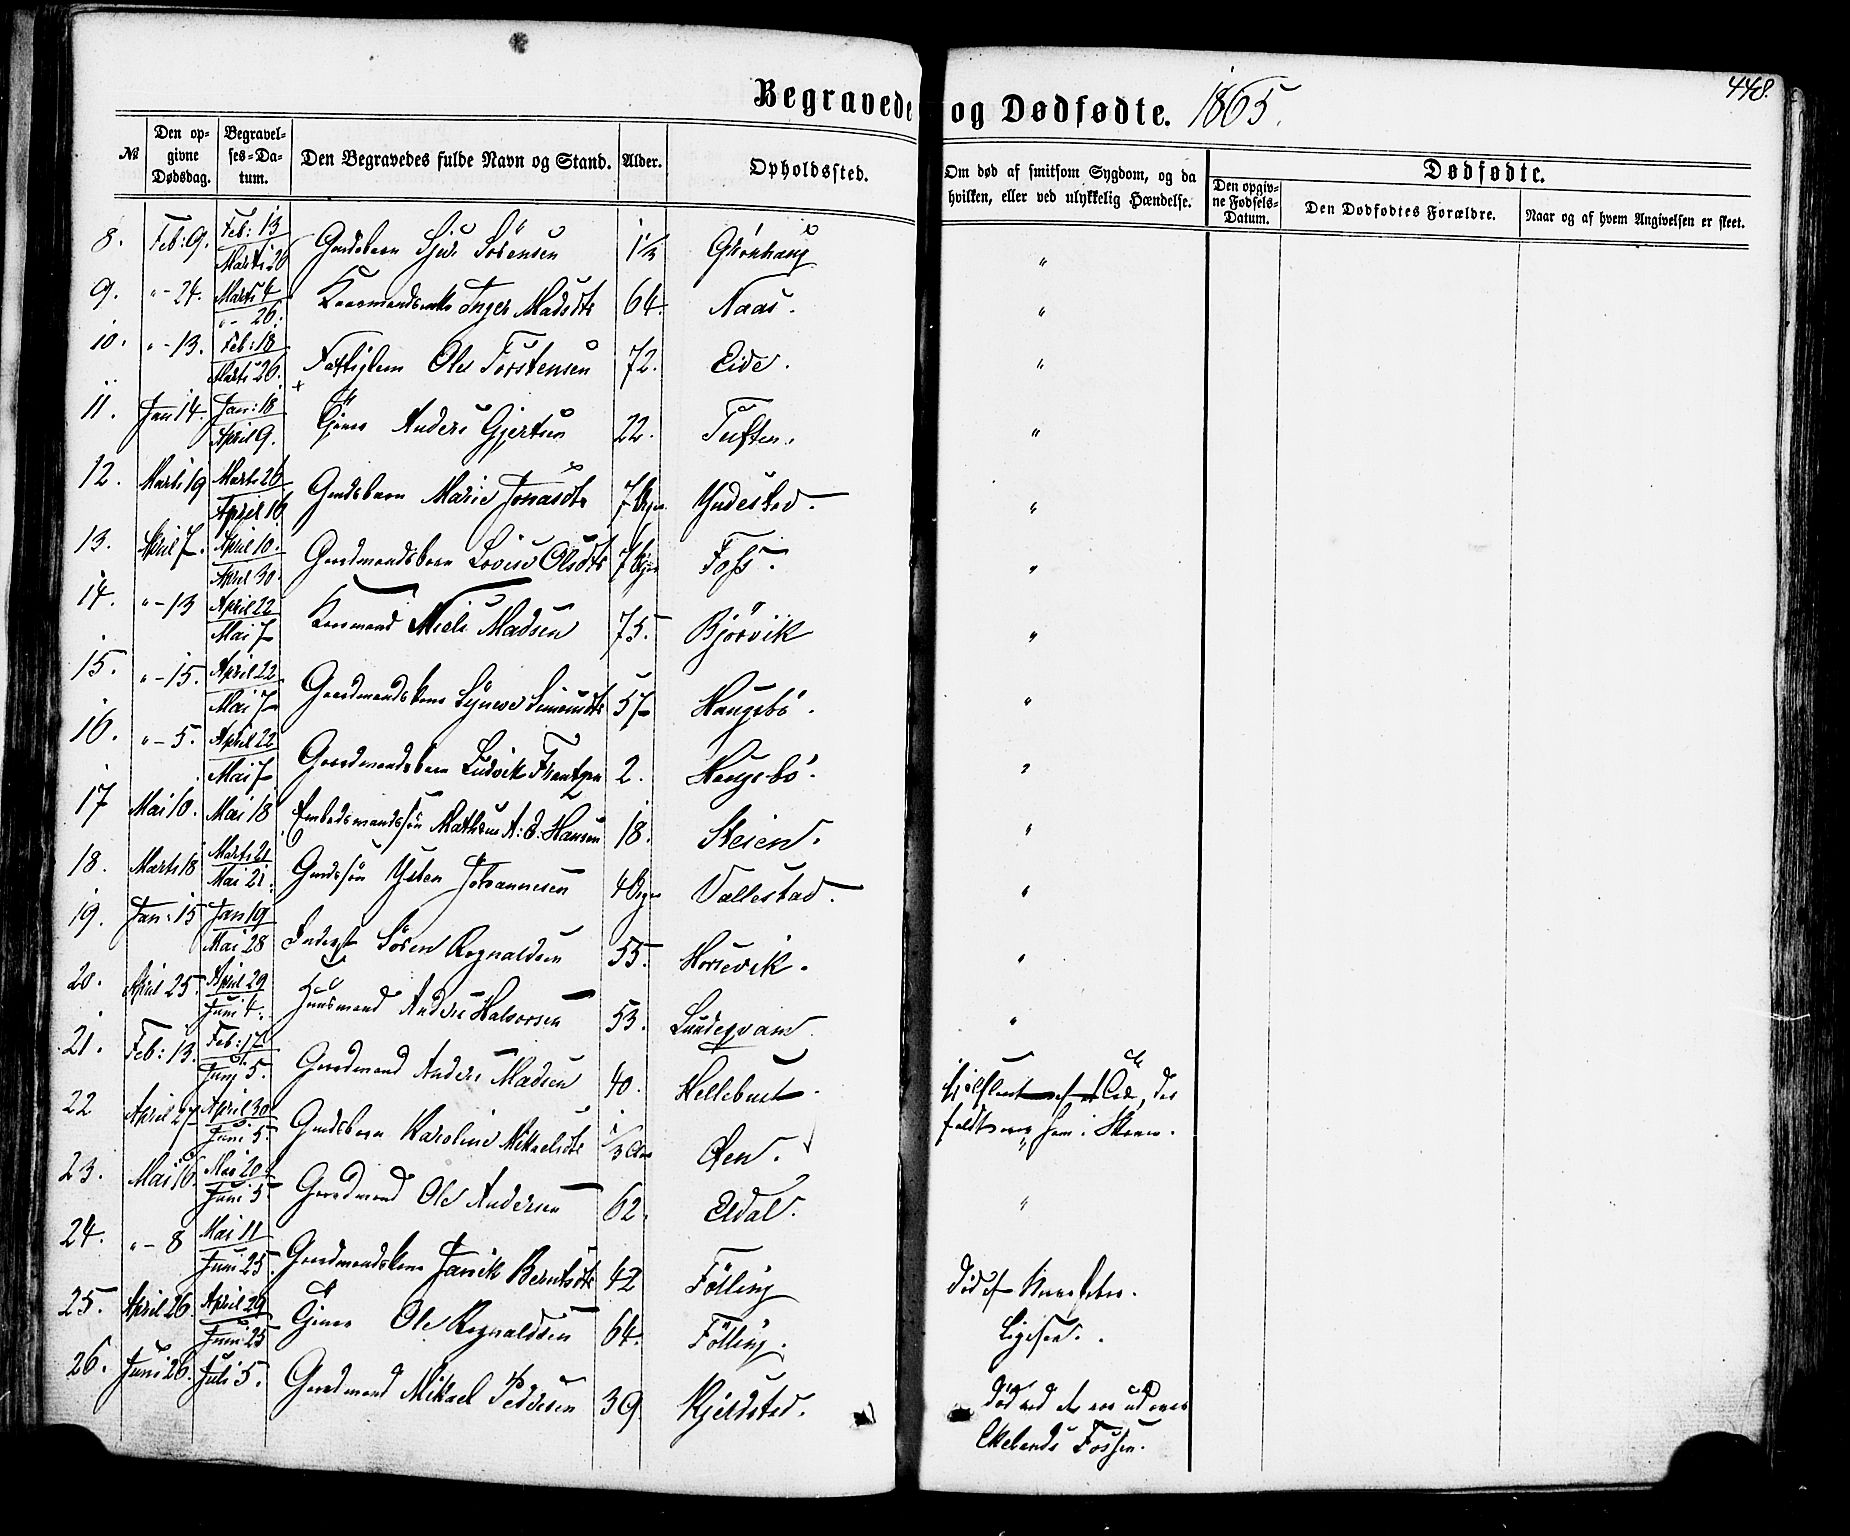 448.
Begravede og Dødfødte. 1865.
№ Den opgivne Dødsdag. Begravelses-Datum. Den Begravedes fulde Navn og Stand. Alder. Opholdssted. Om død af smitsom Sygdom, og da hvilken, eller ved ulykkelig Hændelse. Dødfødte.
Den opgivne Fødsels-Datum. Den Dødfødtes Forældre. Naar og af hvem Angivelsen er skeet.
8. Feb: 9. Feb: 13 Marts 26 Sjur Sørensen Grønhaug "
9. "-24. Marts 4 "- 26. Inger Madsdtr 64. Naas. "
10. "-13. Feb: 18 Marts 26. Fattiglem Ole Torstensen 72. Eide. "
11. Jan 14. Jan: 18 April 9. Anders Gjertsen 22. Tuften. "
12. Marts 19 Marts 26 April 16 Gmdsbarn Marie Jonasdtr 7 Yndestad. "
13. April 7. April 10. April 30. Gaardmandsbarn Lovise Olsdtr 7 Foss. "
14. "-13 April 22 Mai 7 Niels Madsen 75. Bjørvik "
15. "-15. April 22 Mai 7 Gaardmandskone Synneve Simensdtr 57 Haugsbö. "
16. "-5. April 22 Mai 7 Gaardmandsbarn Ludvik Frantzen 2. Haugsbö. "
17 Mai 10. Mai 18 Embedsmandssön Mathias A: E. Hansen 18. Steien. "
18. Marts 18 Marts 21 Mai 21. Gmdssön Johannesen 4 Vallestad. "
19. Jan: 15 Jan 19 Mai 28 Inderst Sören Ragnaldsen 55. Horsevik. "
20. April 25. April 29 Juni 4. Huusmand Anders Halvorsen 53. Lundeqvam. "
21. Feb: 13. Feb: 17 Juni 5. Gaardmand Anders Madsen 40. Hellebust.
22 April 27 April 30 Juni 5. Gmdsbarn Karoline Mikkelsdtr Øen.
23. Mai 16 Mai 20 Juni 5 Gaardmand Ole Andersen 62. Eldal. "
24. "-8 Mai 11 Juni 25. Gaardmandskone Jansik Berntsdtr 42 Fölling Död af
25. April 26. April 29 Juni 25 Ole Ragnaldsen 64. Fölling. Ligesaa.
26. Juni 26. Juli 5. Gaardmand Mikael Pedersen 39. Kjelstad. Död ved at
Fossen.